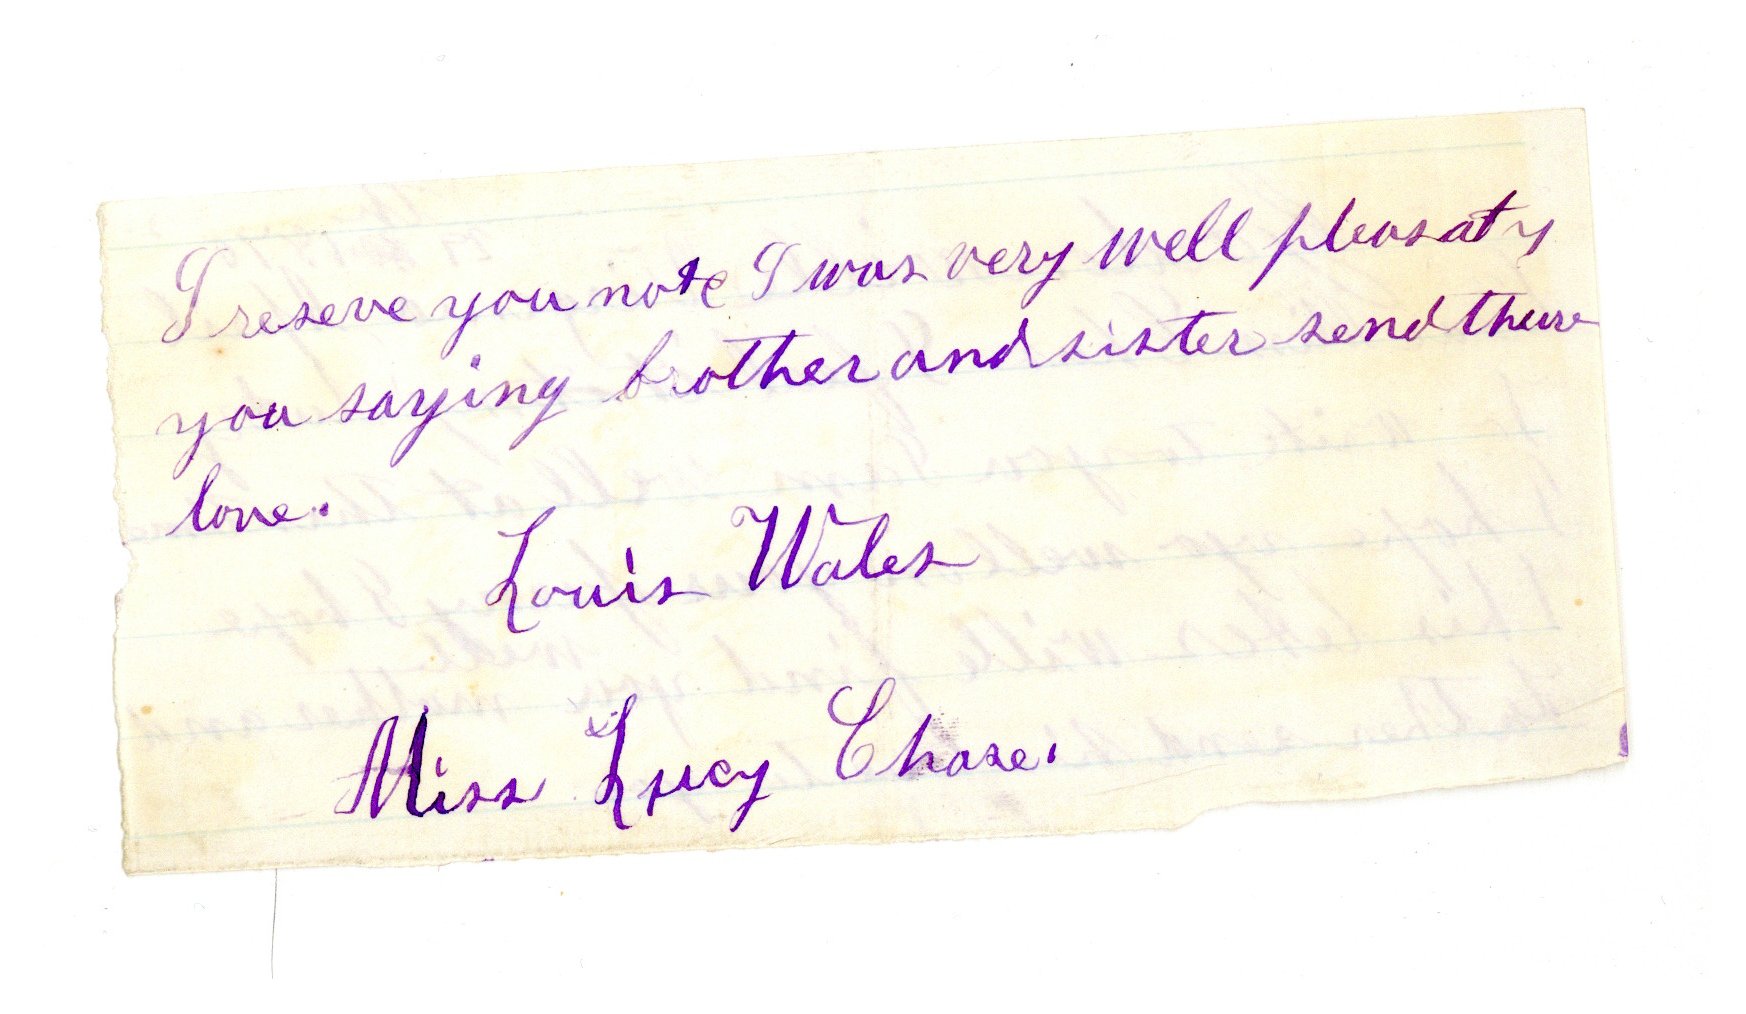 I reseve you note I was very well pleas at y
you saying brother and sister send theire
love.
Louis Wales
Miss Lucy Chase.